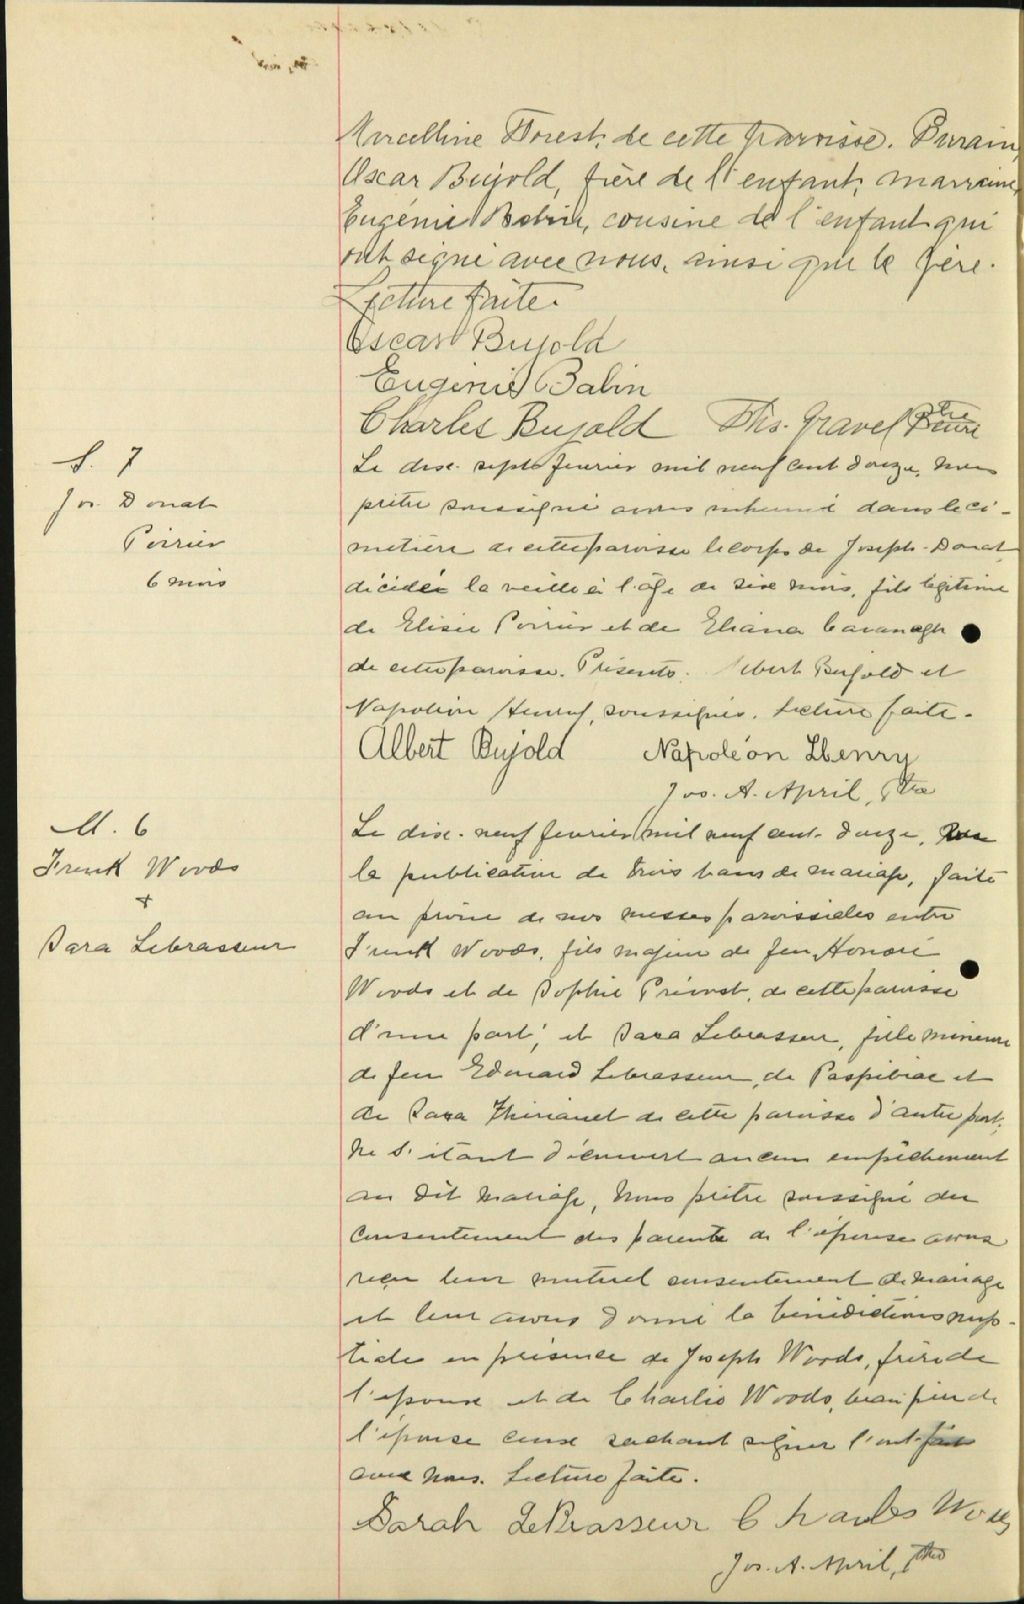 Marcelline Forest, de cette paroisse. Parrain,
Oscar Bujold, frère de l'enfant, marraine,
Eugénie Babin, cousine de l'enfant qui
ont signé avec nous, ainsi que le père.
Lecture faite.
Oscar Bujold
Eugénie Babin
Charles Bujold Ths. Gravel Ptre Curé
S. 7
Jos. Donat
Poirier
6 mois
Le dix-sept février mil neuf cent douze, nous
prêtre soussigné avons inhumé dans le ci-
metière de cette paroisse le corps de Joseph-Donat,
décédé la veille à l'âge de six mois, fils légitime
de Elisée Poirier et de Eliana Cavanagh
de cette paroisse. Présents: Albert Bujold et
Napoléon Henry, soussignés. Lecture faite.
Albert Bujold Napoléon Henry
Jos. A. April, Ptre
M. 6
Frank Woods
+
Sara Lebrasseur
Le dix-neuf février mil neuf cent douze,
la publication de trois bans de mariage, faite
au prône de nos messes paroissiales entre
Frank Woods, fils majeur de feu Honoré
Woods et de Sophie Prévost, de cette paroisse
d'une part; et Sara Lebrasseur, fille mineure
de feu Edouard Lebrasseur, de Paspébiac et
de Sara de cette paroisse d'autre part;
ne s'étant découvert aucun empêchement
au dit mariage, Nous prêtre soussigné du
consentement des parents de l'épouse avons
reçu leur mutuel consentement de mariage
et leur avons donné la bénédiction nup-
tiale en présence de Joseph Woods, frère de
l'époux et de Charlie Woods, beau père de
l'épouse ceux sachant signer l'ont fait
avec nous. Lecture faite.
Sarah LeBrasseur Charles Woods
Jos. A. April, Ptre